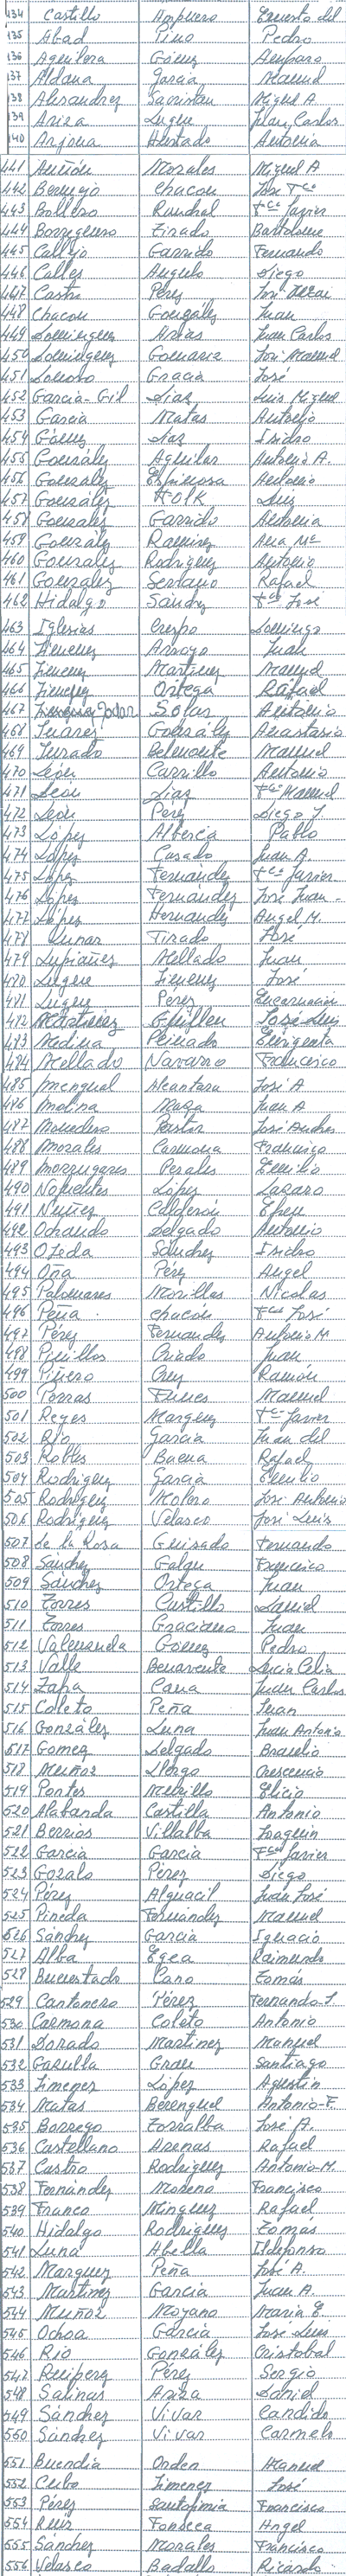 434 Castillo Ampuero Ernesto del
435 Abad Pino Pedro
436 Aguilera Gómez Amparo
437 Aldana Garcia Manuel
438 Alexandrez Sacristan Miguel A.
439 Ariza Luque Juan Carlos
440 Arjona Hurtado Antonia
441 Auñón Morales Miguel A
442 Bermejo Chacon José Fco
443 Bollero Fco Javier
444 Borreguero Tirado Bartolome
445 Callejo Garrido Fernando
446 Calles Angulo Diego
447 Castro Pérez José
448 Chacon González Juan
449 Dominguez Arias Juan Carlos
450 Dominguez Gomariz José Manuel
451 Donoso Gracia José
452 Garcia-Gil Diaz Luis Miguel
453 Garcia Matas Antonio
454 Gómez Diaz Isidro
455 González Aguilar Antonio A.
456 González Espinosa Antonio
457 González Holk Luis
458 González Garrido Antonia
459 González Ramirez Ana Mª
460 González Rodriguez Antonio
461 González Serrano Rafael
462 Hidalgo Sánchez Fco José
463 Iglesias Crespo Domingo
464 Jimenez Arroyo Juan
465 Jimenez Martinez Manuel
466 Jimenez Ortega Rafael
467 Solas Antonio
468 Juárez González Anastasio
469 Jurado Belmonte Manuel
470 León Carrillo Antonio
471 León Diaz Fco Manuel
472 León Pérez Diego J.
473 López Alberca Pablo
474 López Casado Juan A.
475 López Fernández Fco Javier
476 López Fernández José Juan
477 López Hernandez Angel M.
478 Lunar Tirado José
479 Lupiañez Mellado Juan
480 Luque Jimenez José
481 Luque Perez Encarnación
482 Martinez Guillen José Luis
483 Medina Peinado
484 Mellado Navarro Francisco
485 Mengual Alcantara José A
486 Molina Maza Juan A
487 Monedero Pastor José Andres
488 Morales Carmona Francisco
489 Moreguigares Perales Emilio
490 Noguentes López Lazaro
491 Nuñez Calderón Efren
492 Ochando Delgado Antonio
493 Ojeda Sánchez Isidro
494 Oña Pérez Angel
495 Palomares Morillas Nicolas
496 Peña Chacón Fco José
497 Pérez Fernandez Antonio M
498 Pinillos Criado Juan
499 Piñero Cruz Ramón
500 Porras Funes Manuel
501 Reyes Marquez Fco Javier
502 Rio Garcia Juan del
503 Robles Baena Rafael
504 Rodriguez Garcia Emilio
505 Rodriguez Molero José Antonio
506 Rodriguez Velasco José Luis
507 de la Rosa Guisado Fernando
508 Sánchez Galan Francisco
509 Sánchez Ortega Juan
510 Torres Castillo Daniel
511 Torres Graciano Juan
512 Valenzuela Gómez Pedro
513 Valle Benavente Lucia Celia
514 Zafra Cana Juan Carlos
515 Coleto Peña Juan
516 González Luna Juan Antonio
517 Gomez Delgado Braulio
518 Muñoz Llergo Crescencio
519 Pontes Murillo Elicio
520 Alabanda Castilla Antonio
521 Berrios Villalba Joaquin
522 Garcia Garcia Fco Javier
523 Gozalo Pérez Diego
524 Pérez Alguacil Juan José
525 Pineda Fernández Manuel
526 Sánchez Garcia Ignacio
527 Alba Egea Raimundo
528 Buenestado Cano Tomás
529 Cantonero Pérez Fernando J.
530 Carmona Coleto Antonio
531 Dorado Martinez Manuel
532 Garulla Grau Santiago
533 Jimenez López Agustin
534 Matas Berenguel Antonio-F.
535 Borrego Torralba José A.
536 Castellano Arenas Rafael
537 Castro Rodriguez Antonio-M.
538 Fernández Moreno Francisco
539 Franco Minguez Rafael
540 Hidalgo Rodriguez Tomás
541 Luna Abella Ildefonso
542 Marquez Peña José A.
543 Martinez Garcia Juan A.
544 Muñoz Moyano Maria E.
545 Ochoa Garcia José Luis
546 Rio González Cristobal
547 Ruiperez Pérez Sergio
548 Salinas Ariza Daniel
549 Sánchez Vivar Candido
550 Sánchez Vivar Carmelo
551 Buendia Orden Manuel
552 Cubo Jimenez José
553 Pérez Santofimia Francisco
554 Ruiz Fonseca Angel
555 Sánchez Morales Francisco
556 Velasco Badallo Ricardo